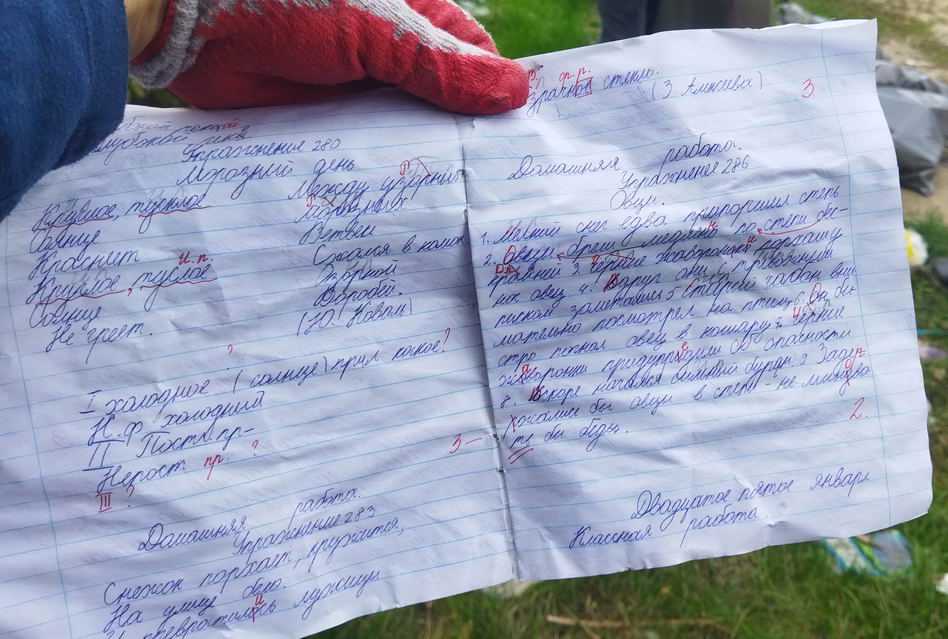 Упражнение 280
Морозный день
Круглое, тусклое
Солнце
Краснеет
и.п.
Круглое, туслое
Солнце
Не греет.
Между узорных
Морозных
Ветвей
Сжался в комок
Зябкой
Воробей.
(Ю. Коваль)
?
I холодное (солнце) прил какое?
Н.ф. холодный
II Пост. пр-
Непост пр. ?
III ?
3-
Домашняя работа.
Упражнение 283
Снежок порхает, кружится,
На улице бело.
И превратились лужицы
ф. р.
стекло.
(З. Алексеева)
3
Домашняя работа.
Упражнение 286
Овцы.
1. Мелкий снег едва припорошил степь
2. Овцы брели медлено по степи бес-
жаворонок
овец 4. Вдруг они с тревожным
писком заметались 5 Старый чабан вни
мательно посмотрел на птиц 6. Он бы
стро погнал овец в кошару 7. Черные
жаворонки предупредили об опасности
8. Вскоре начался сильный буран. 9 Заде
ржались бы овцы в степи - не миновать
бы беды.
2.
Двадцатое пятое января
Классная работа